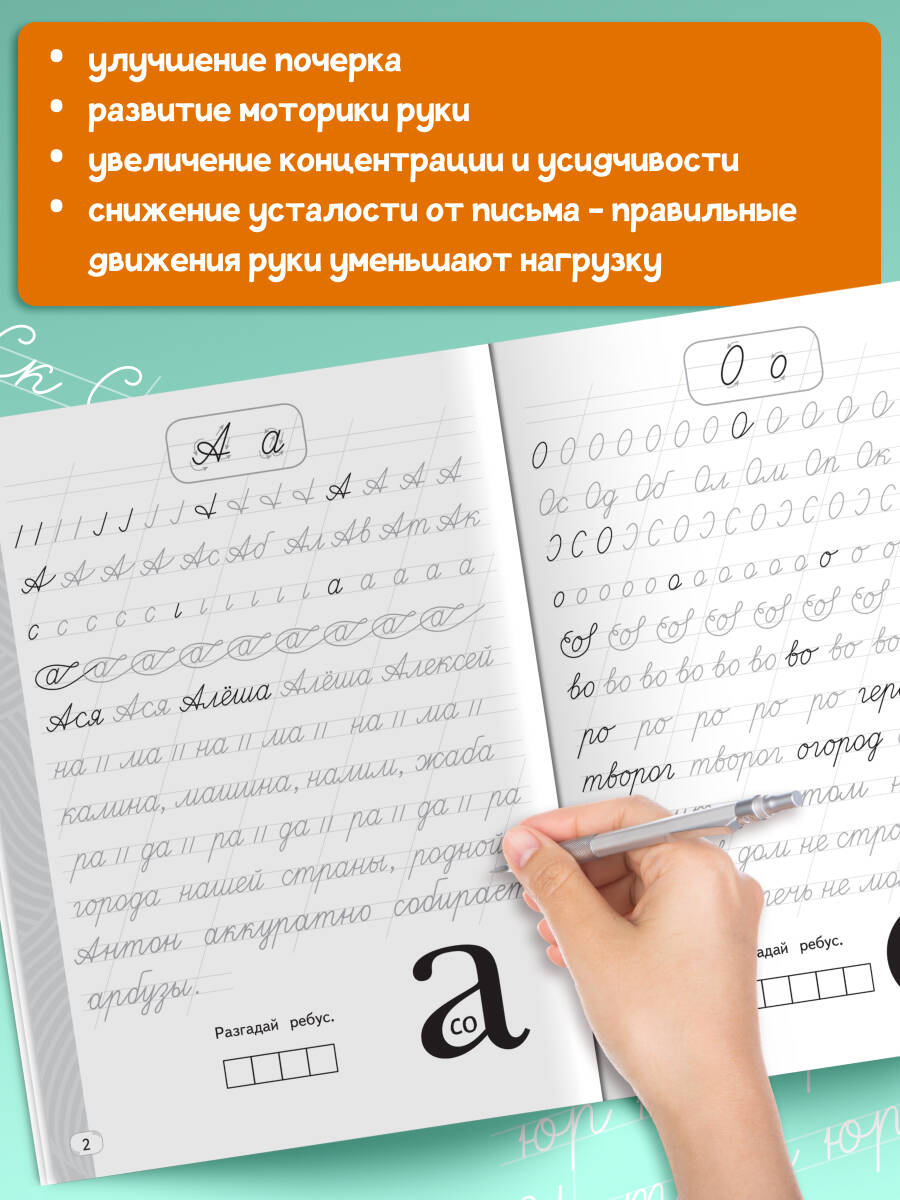 • улучшение почерка
• развитие моторики руки
• увеличение концентрации и усидчивости
• снижение усталости от письма – правильные
движения руки уменьшают нагрузку
Ск С
А а
А А А А А А
А А А А Ас Аб Ал Ав Ат Ак
с с с с с а а а а а
а а а а а а а а
Ася Ася Алёша Алёша Алексей
на || ма || на || ма || на || ма ||
калина, машина, налим, жаба
ра || да || ра || да || ра || да || ра
города нашей страны, родной
Антон аккуратно собирает
арбузы.
Разгадай ребус.
а
со
2
О о
О О О О О О О О О О О О
Ос Од Об Ол Ом Оп Ок
о о о о о о о о о о о о о
во во во во во во во во во
ро ро ро ро ро
творог творог огород
том
дом не стро
печь не
ребус.
юр
юр